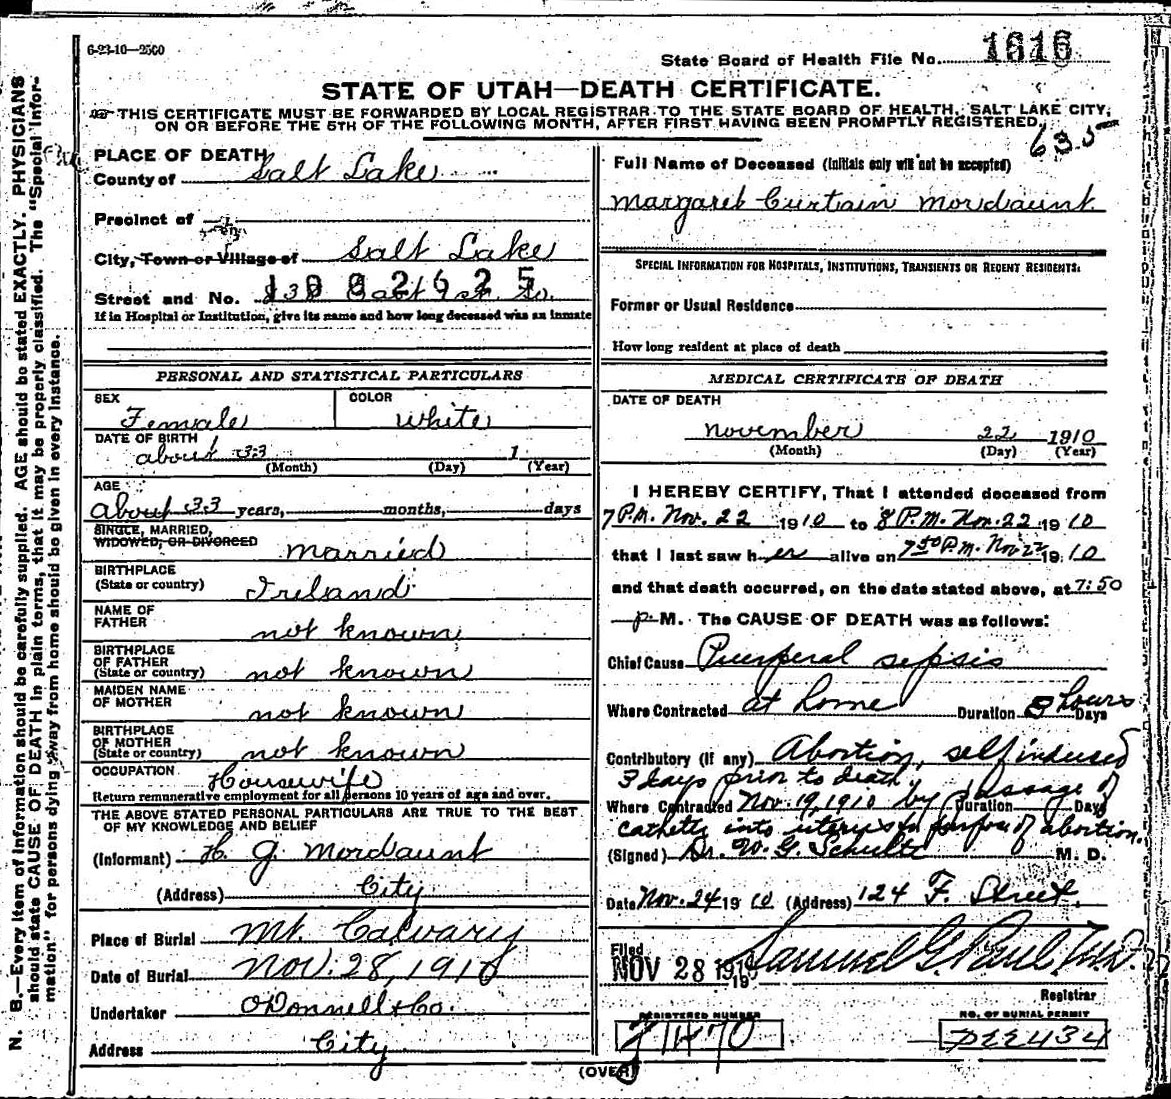 6-23-10—2500
State Board of Health File No. 1616
STATE OF UTAH—DEATH CERTIFICATE.
THIS CERTIFICATE MUST BE FORWARDED BY LOCAL REGISTRAR TO THE STATE BOARD OF HEALTH, SALT LAKE CITY,
ON OR BEFORE THE 5TH OF THE FOLLOWING MONTH, AFTER FIRST HAVING BEEN PROMPTLY REGISTERED.
635
N. B.—Every item of information should be carefully supplied. AGE should be stated EXACTLY. PHYSICIANS
should state CAUSE OF DEATH in plain terms, that it may be properly classified. The "Special Infor-
mation" for persons dying away from home should be given in every instance.
PLACE OF DEATH
County of Salt Lake
Precinct of
City, Town or Village of Salt Lake
Street and No. East So.
If in Hospital or Institution, give its name and how long deceased was an inmate
PERSONAL AND STATISTICAL PARTICULARS
SEX Female COLOR White
DATE OF BIRTH
about 33 1
(Month) (Day) (Year)
AGE
about 33 years, months, days
SINGLE, MARRIED,
WIDOWED, OR DIVORCED married
BIRTHPLACE
(State or country) Ireland
NAME OF
FATHER not known
BIRTHPLACE
OF FATHER
(State or country) not known
MAIDEN NAME
OF MOTHER not known
BIRTHPLACE
OF MOTHER
(State or country) not known
OCCUPATION Housewife
Return remunerative employment for all persons 10 years of age and over.
THE ABOVE STATED PERSONAL PARTICULARS ARE TRUE TO THE BEST
OF MY KNOWLEDGE AND BELIEF
(Informant) H. G. Mordaunt
(Address) City
Place of Burial Mt. Calvary
Date of Burial Nov. 28, 1910
Undertaker O'Donnell & Co.
Address City
Full Name of Deceased (Initials only will not be accepted)
Margaret Curtain Mordaunt
SPECIAL INFORMATION FOR HOSPITALS, INSTITUTIONS, TRANSIENTS OR RECENT RESIDENTS:
Former or Usual Residence
How long resident at place of death
MEDICAL CERTIFICATE OF DEATH
DATE OF DEATH
November 22 1910
(Month) (Day) (Year)
I HEREBY CERTIFY, That I attended deceased from
7 P.M. Nov. 22 1910 to 8 P.M. Nov. 22 1910
that I last saw her alive on 7 50 P.M. Nov 22 1910
and that death occurred, on the date stated above, at 7:50
P M. The CAUSE OF DEATH was as follows:
Chief Cause Puerperal sepsis
Where Contracted at home Duration 8 hours Days
Contributory (if any) Abortion, self induced
3 days prior to death
Where Contracted Nov. 19, 1910 by passage of Duration Days
catheter into uterus for purpose of abortion.
(Signed) Dr. W. G. Schulte M. D.
Date Nov. 24 1910 (Address) 124 F. Street.
Filed
NOV 28 1910 Samuel G. Paul, M.D.
19
Registrar
REGISTERED NUMBER NO. OF BURIAL PERMIT
(OVER)